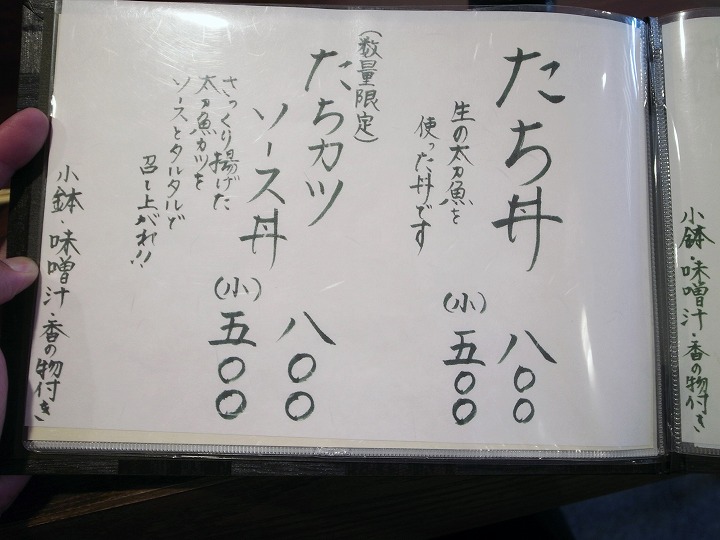 たち丼
八〇〇
生の太刀魚を
使った丼です
(小)五〇〇
(数量限定)
たちカツ
ソース丼
八〇〇
(小)五〇〇
さっくり揚げた
太刀魚カツを
ソースとタルタルで
召し上がれ!!
小鉢・味噌汁・香の物付き
小鉢・味噌汁・香の物付き